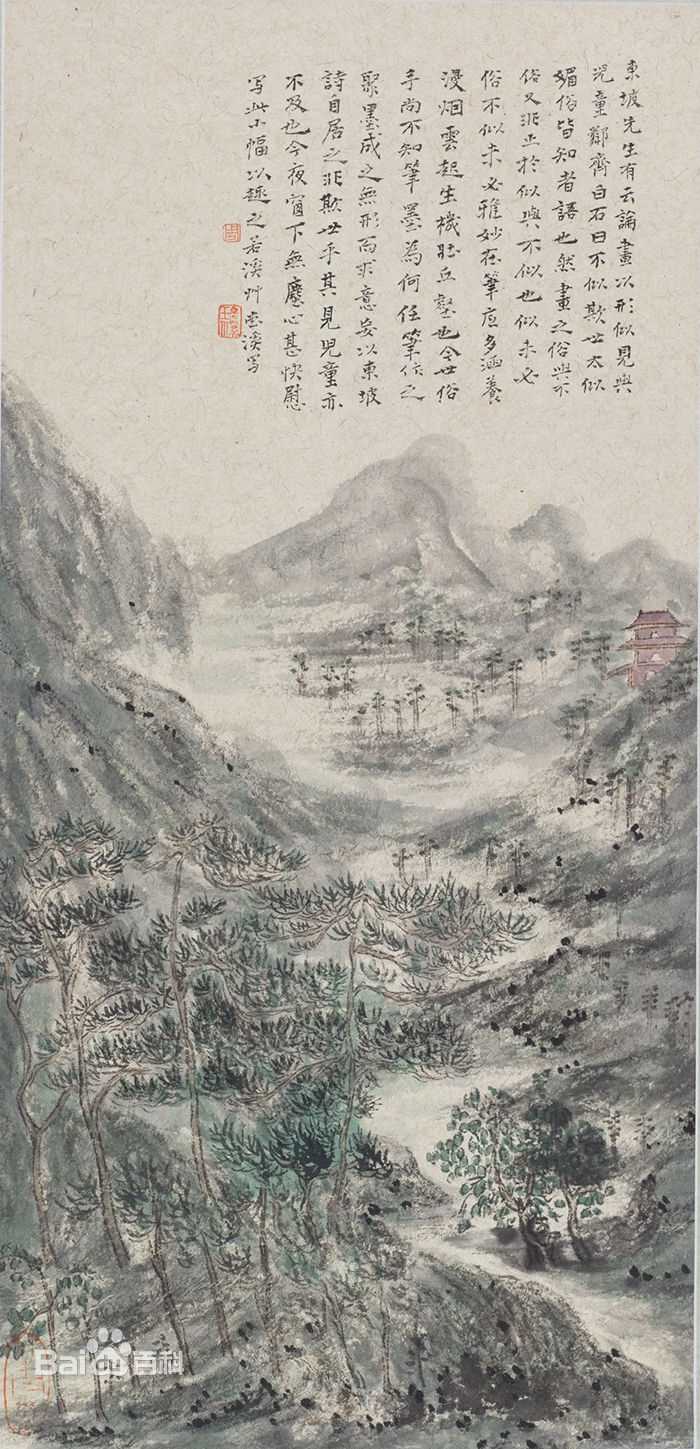 東坡先生有云論畫以形似見與
兒童鄰齊白石曰不似欺世太似
媚俗皆知者語也然畫之俗與不
俗又非止於似與不似也似未必
俗不似未必雅妙在筆底多涵養
漫烟雲起生機胜丘壑也今世俗
手尚不知筆墨為何任筆作之
聚墨成之無形而求意妄以東坡
詩自居之非欺世乎其見兒童亦
不及也今夜窗下無塵心甚快慰
写此小幅以趣之若溪艸堂溪写
Baidu百科